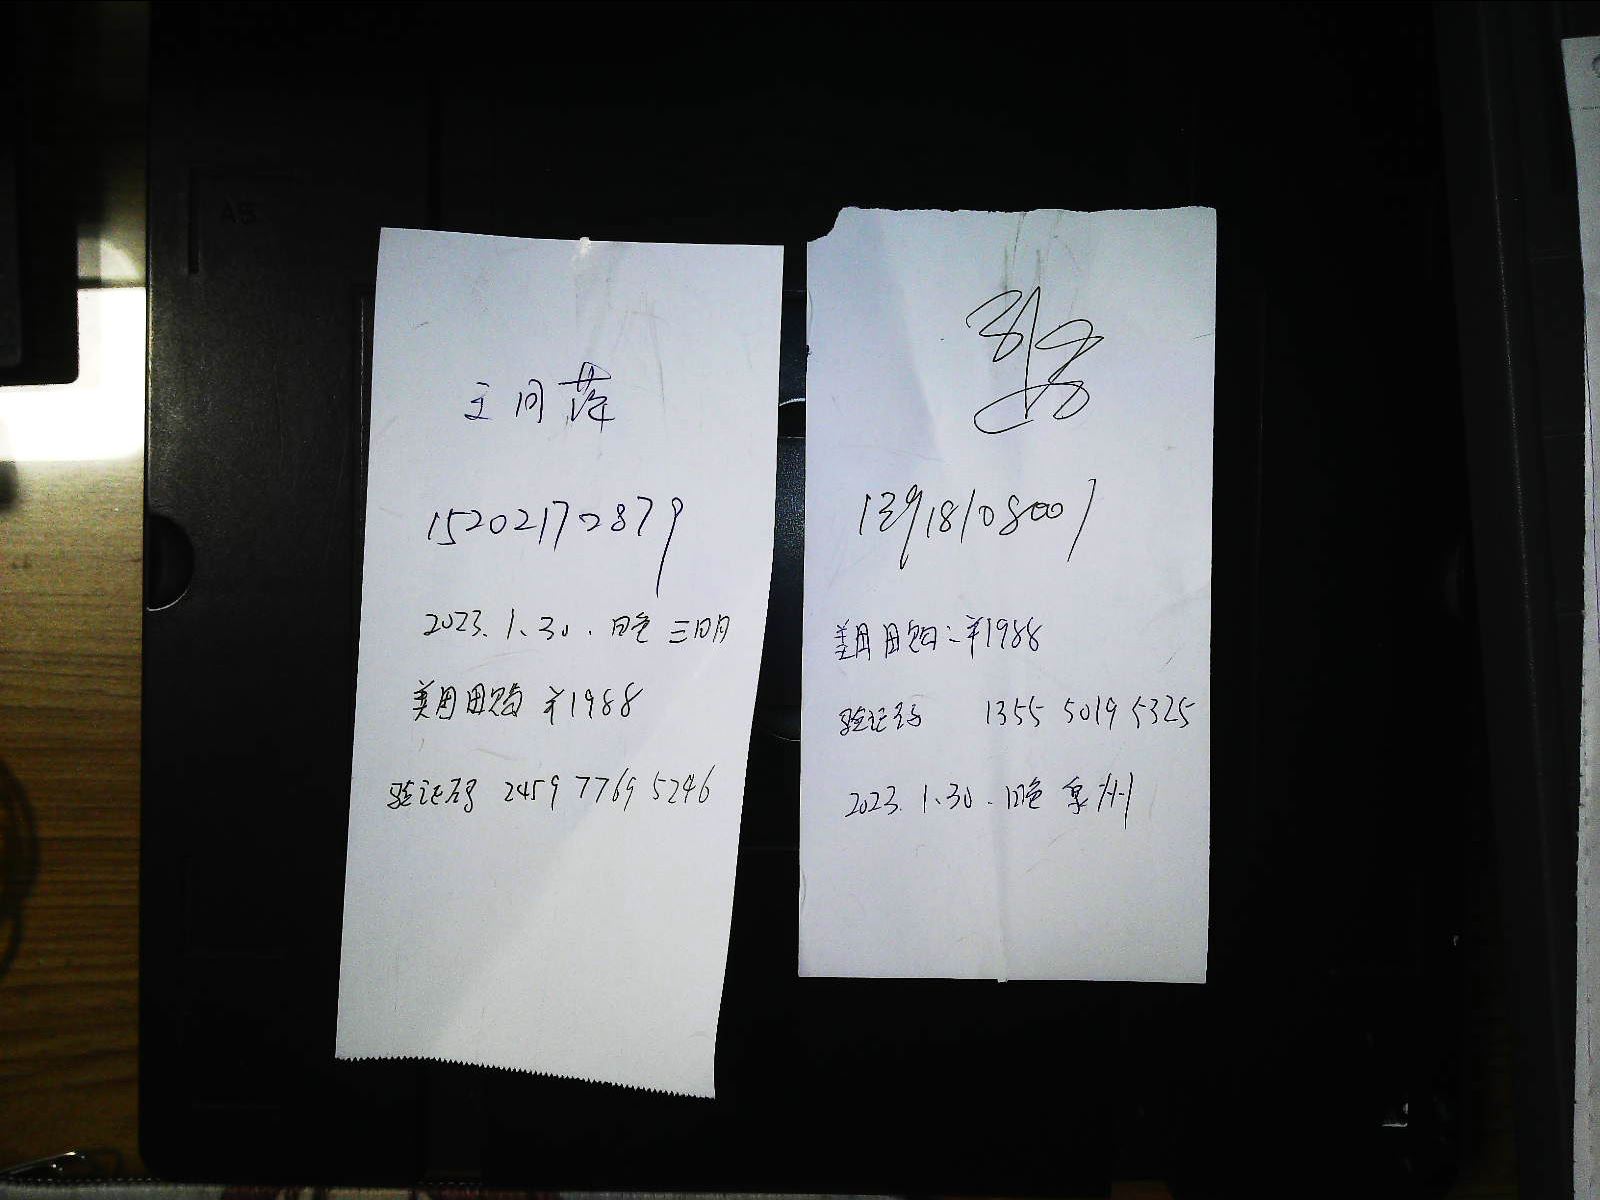 15202172879
2023.1.30.晚 三明
美团团购 ¥1988
验证码 2459 7769 5246
13918108001
美团团购:¥1988
验证码 1355 5019 5325
2023.1.30.晚 泉州